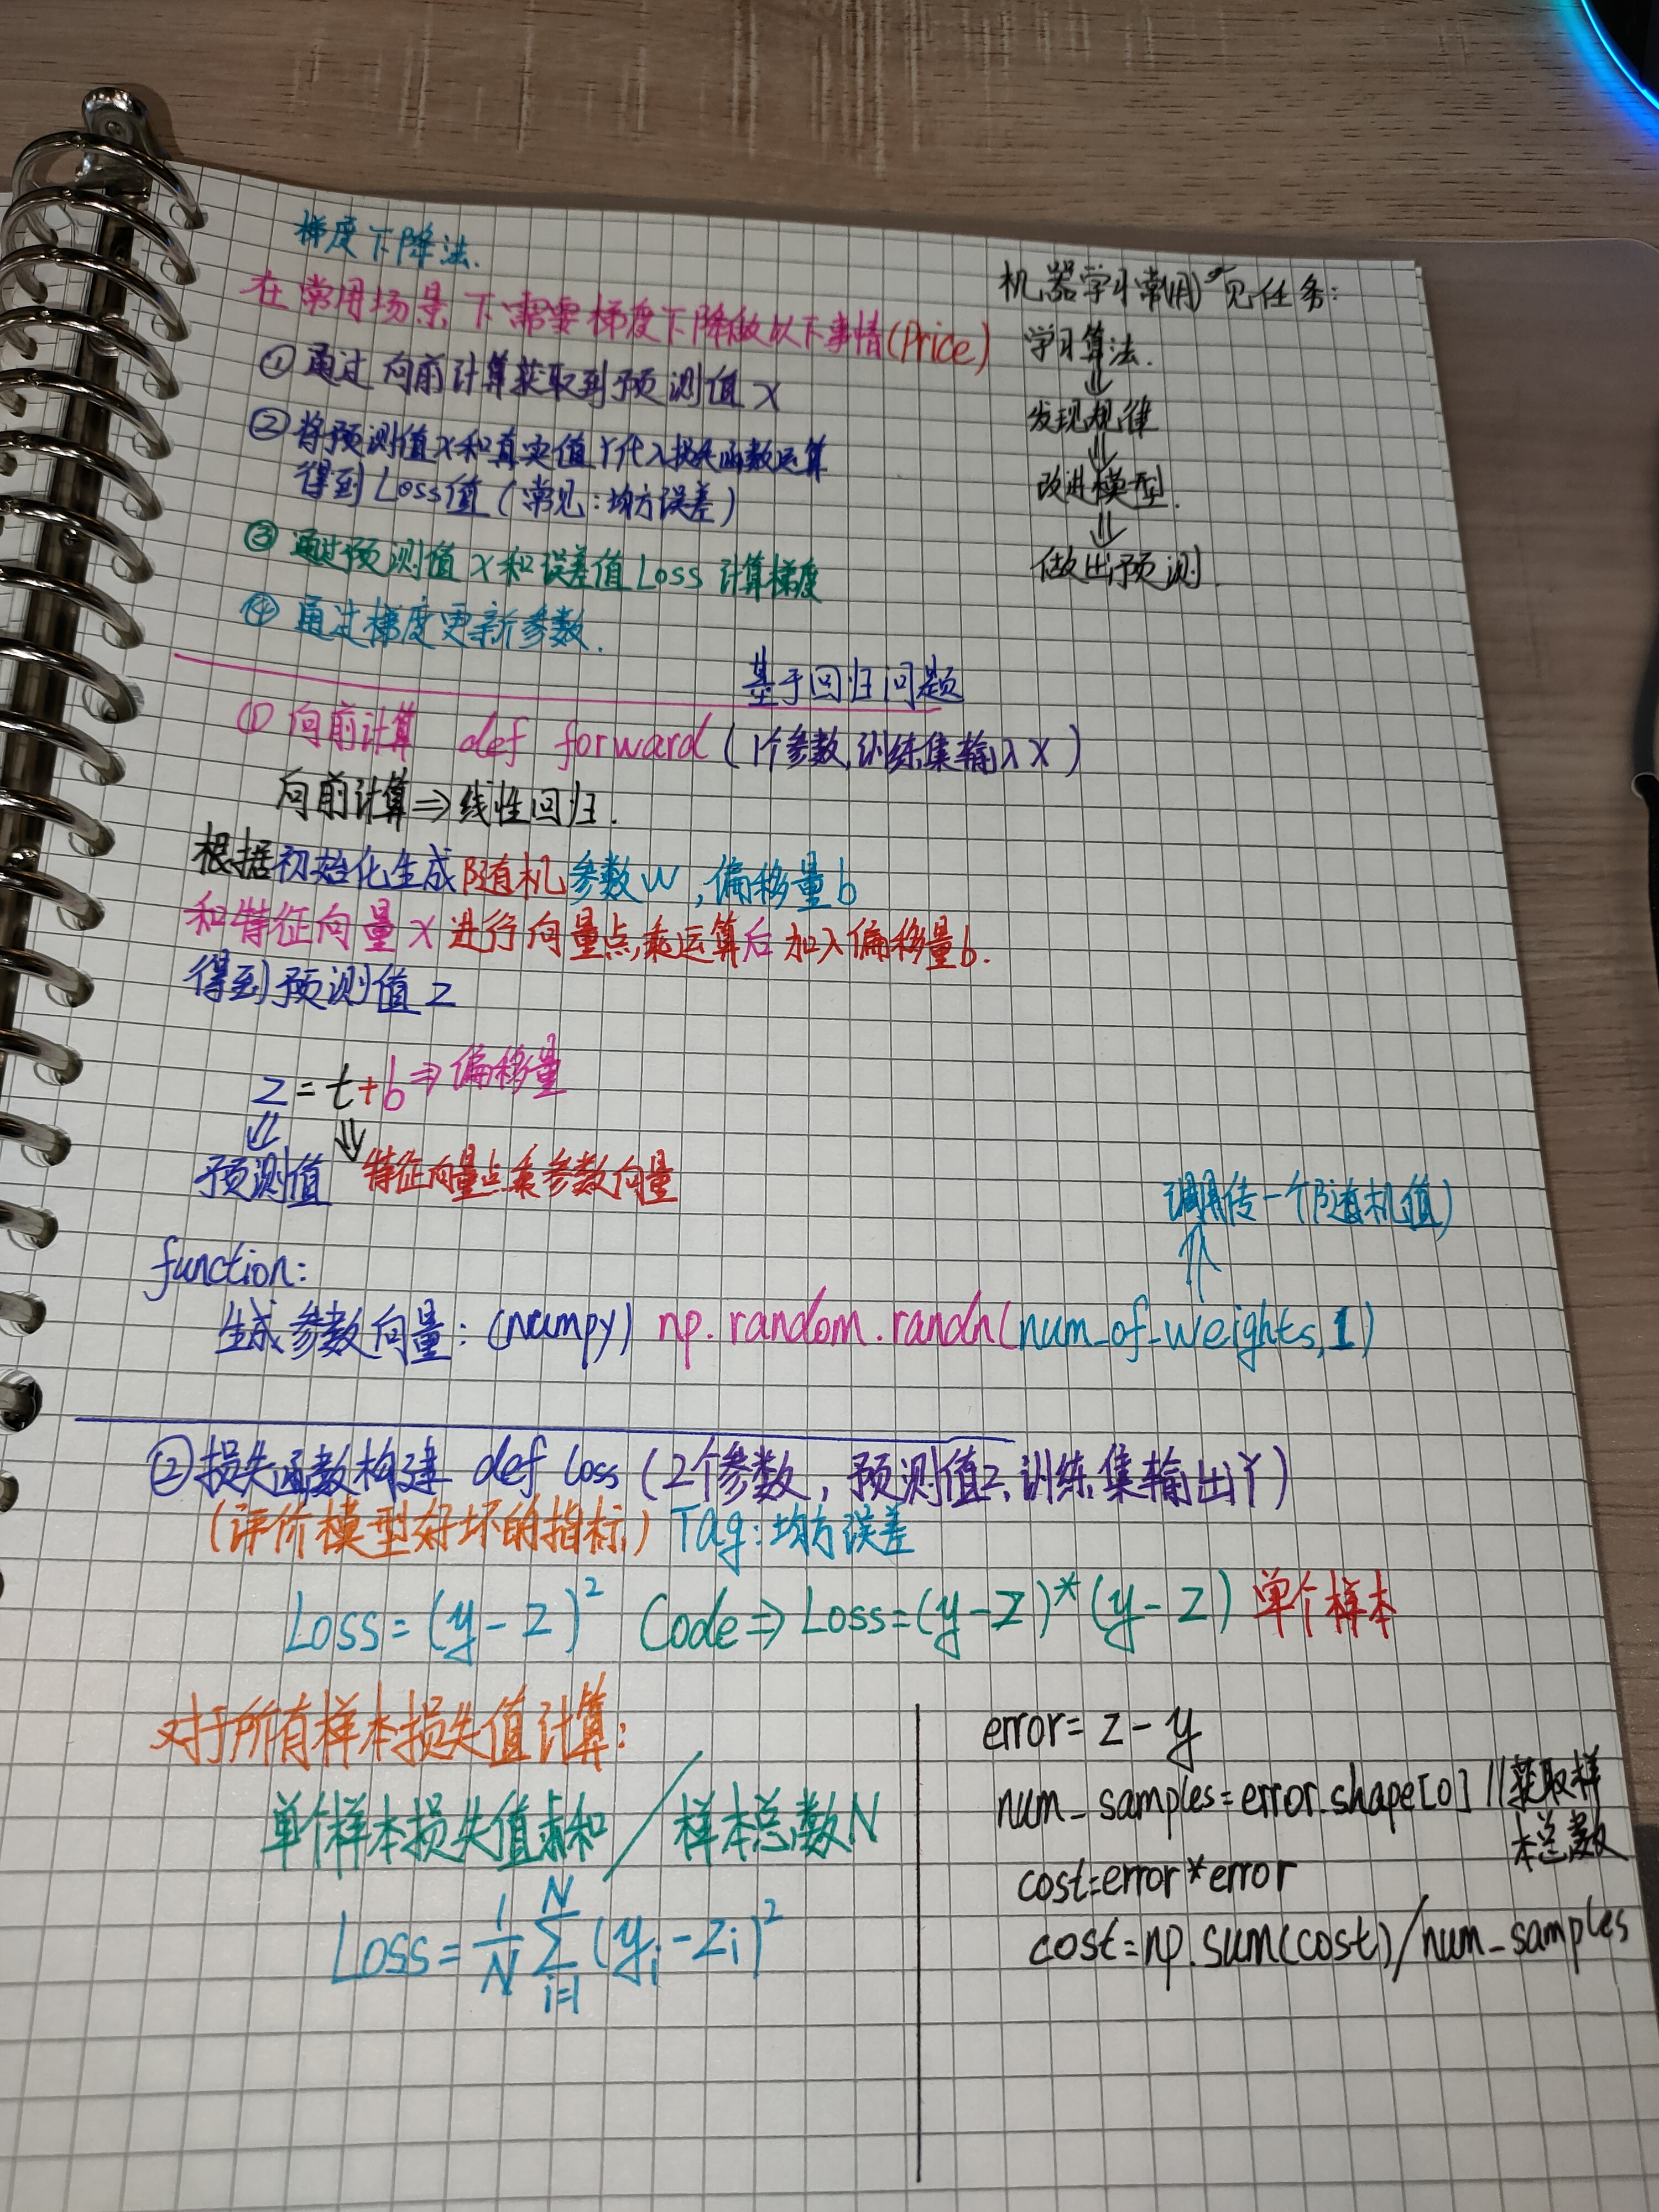 梯度下降法.
在常用场景下需要梯度下降做以下事情(Price)
①通过向前计算获取到预测值X
②将预测值X和真实值Y代入损失函数运算
得到Loss值(常见:均方误差)
③通过预测值X和误差值Loss计算梯度
④通过梯度更新参数.
机器学习常用常见任务:
学习算法.
⇓
发现规律
⇓
改进模型.
⇓
做出预测.
基于回归问题
①向前计算 def forward(1个参数,训练集输入X)
向前计算⇒线性回归.
根据初始化生成随机参数w,偏移量b
和特征向量X进行向量点乘运算后加入偏移量b.
得到预测值Z
z=t+b⇒偏移量
⇓ ⇓
预测值 特征向量点乘参数向量
调用传一个随机值)
⇑
function:
生成参数向量:(numpy) np.random.randn(num_of_weights,1)
②损失函数构建 def loss(2个参数,预测值Z,训练集输出Y)
(评价模型好坏的指标) Tag:均方误差
Loss=(y-z)² Code⇒Loss=(y-z)*(y-z) 单个样本
对于所有样本损失值计算:
单个样本损失值求和/样本总数N
Loss=1/N ∑ᵢ₌₁ᴺ (yᵢ-zᵢ)²
error=z-y
num_samples=error.shape[0] //获取样
本总数
cost=error*error
cost=np.sum(cost)/num_samples